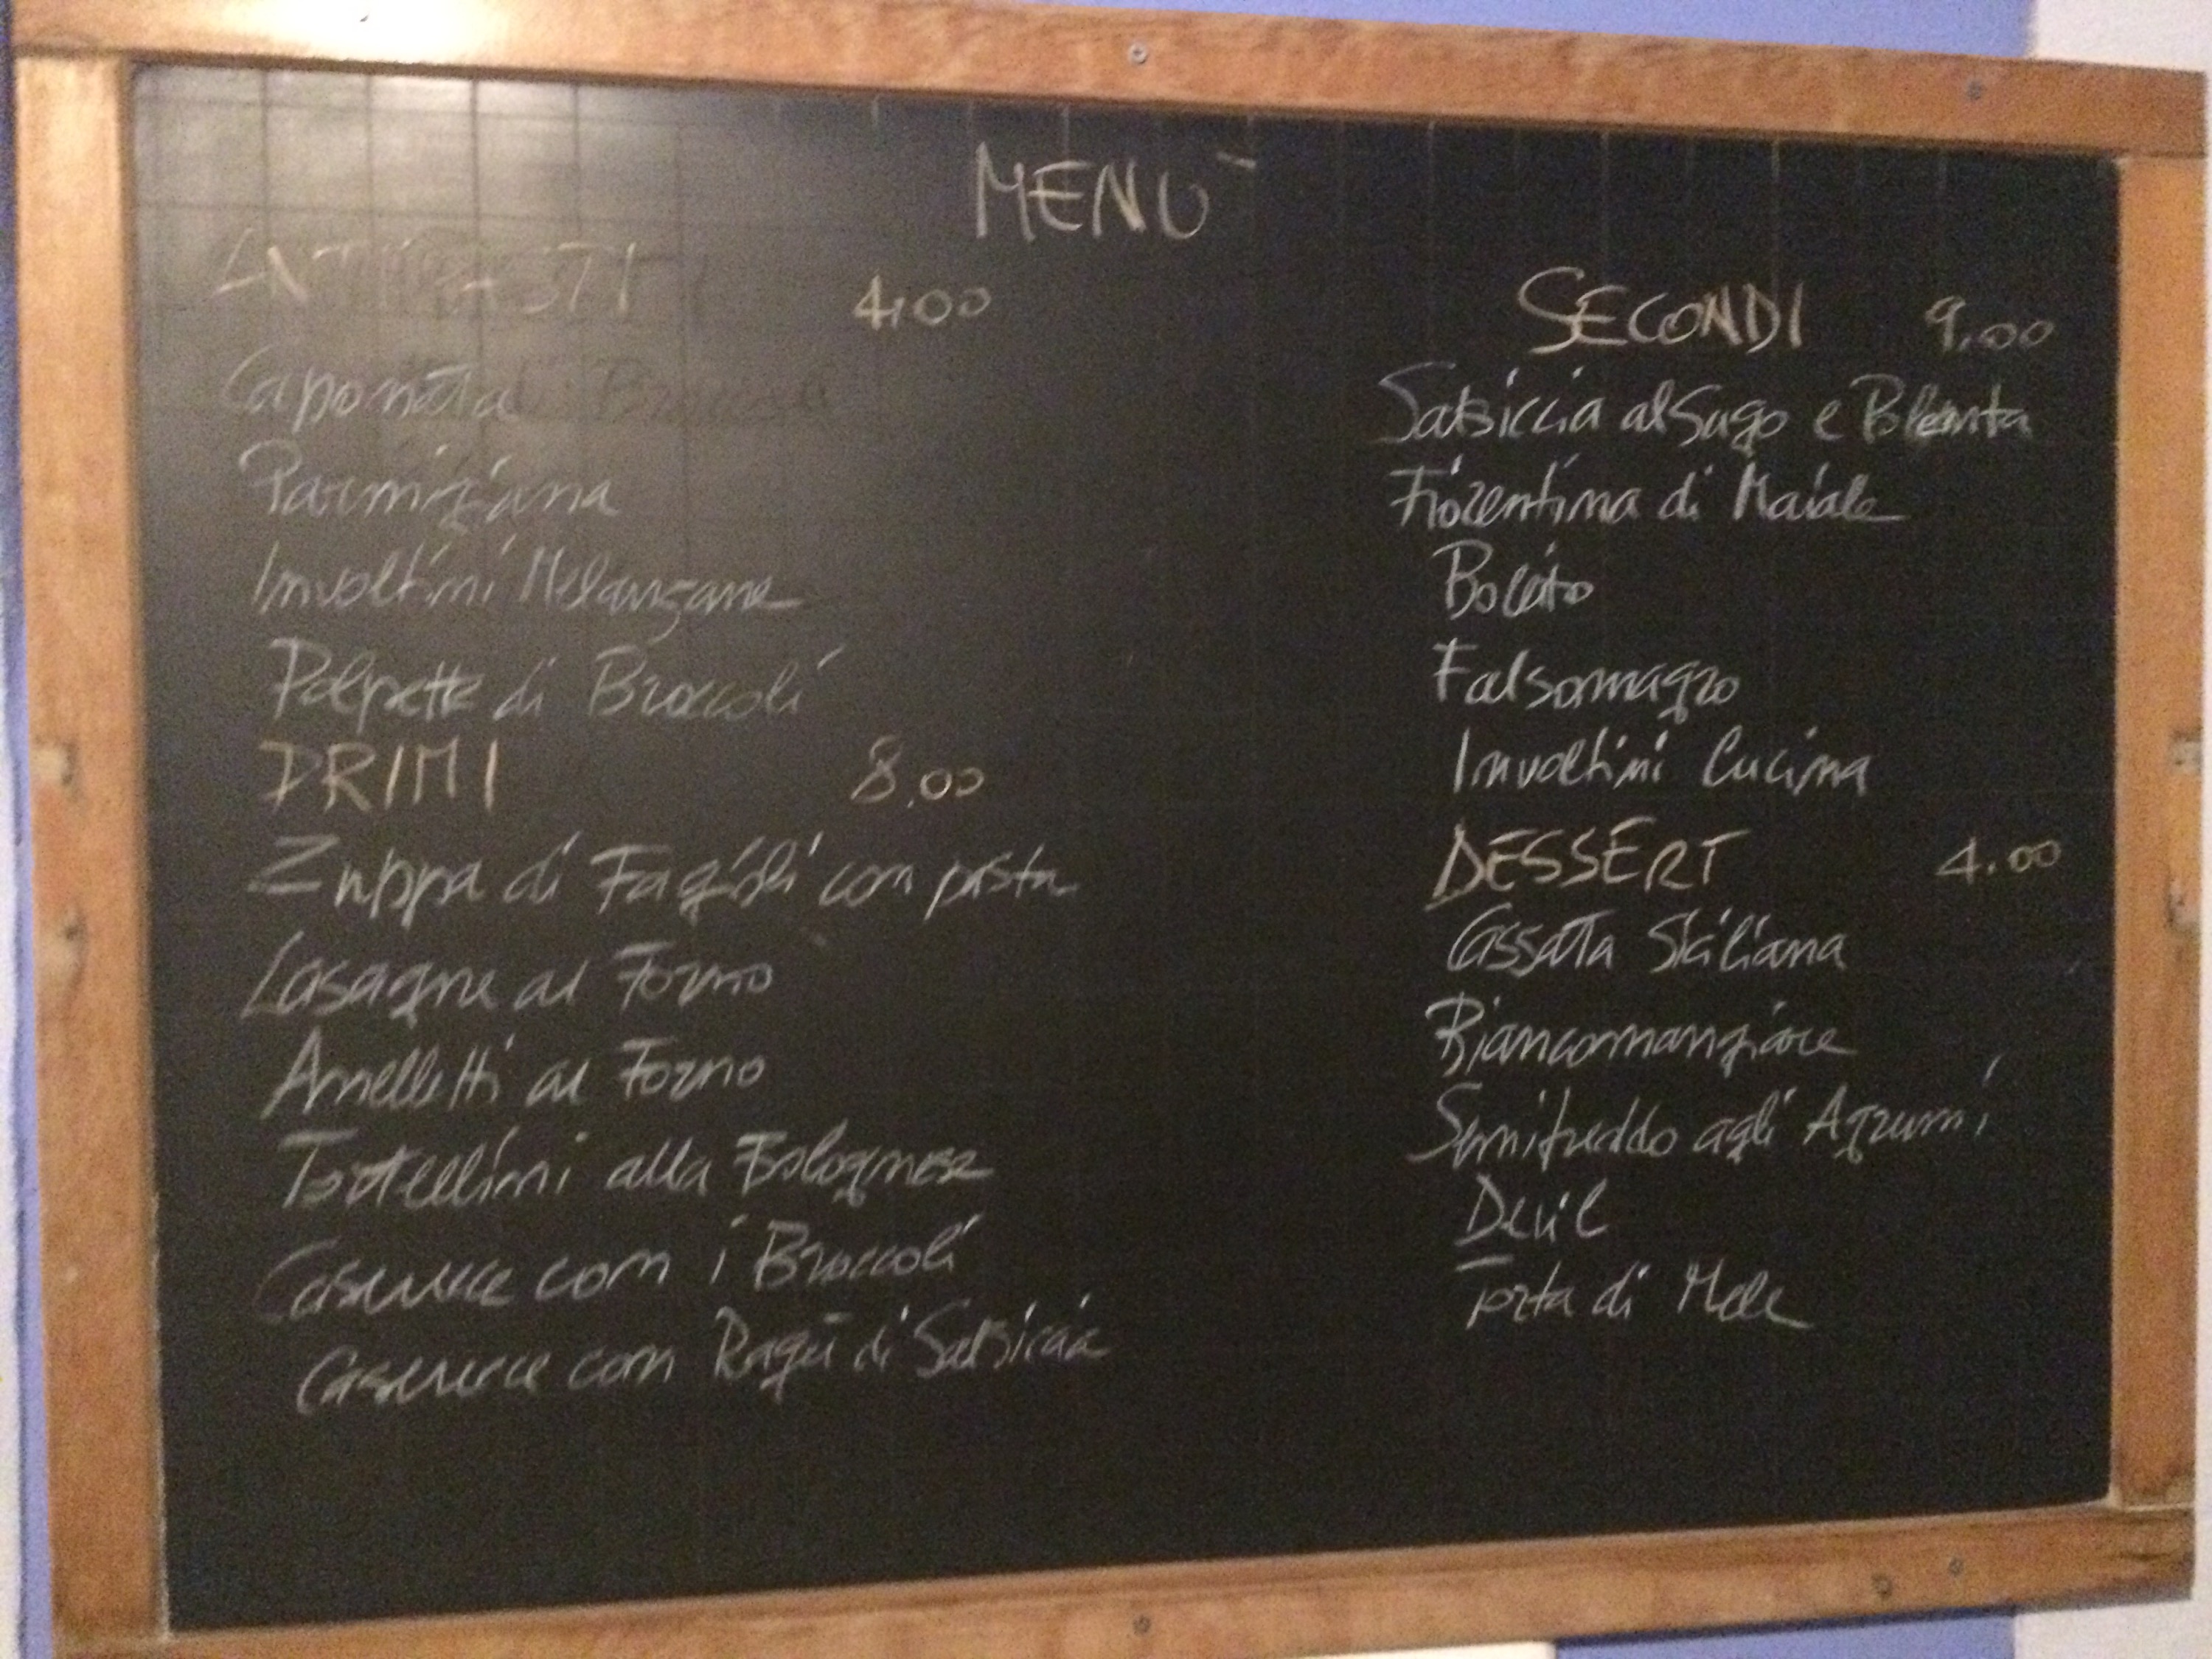 MENU`
ANTIPASTI 4,00
Caponata
Parmigiana
Involtini Melanzane
Polpette di Broccoli
PRIMI 8,00
Zuppa di Fagioli con pasta
Lasagne al Forno
Anelletti al Forno
Tortellini alla Bolognese
Caserecce con i Broccoli
Caserecce con Ragù di Salsiccia
SECONDI 9,00
Salsiccia al Sugo e Polenta
Fiorentina di Maiale
Bollito
Falsomagro
Involtini Cucina
DESSERT 4.00
Cassata Siciliana
Biancomangiare
Semifreddo agli Agrumi
Devil
Torta di Mele